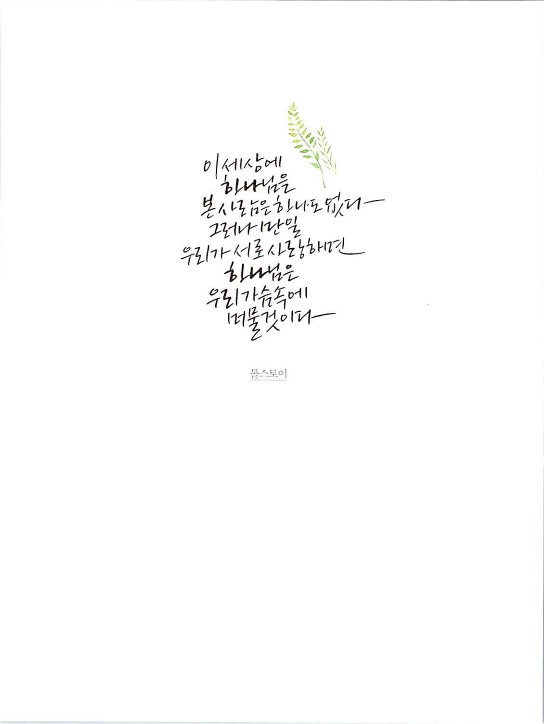 이 세상에
하나님을
본 사람은 하나도 없다
그러나 만일
우리가 서로 사랑하면
하나님은
우리 가슴 속에
머물 것이다
톨스토이